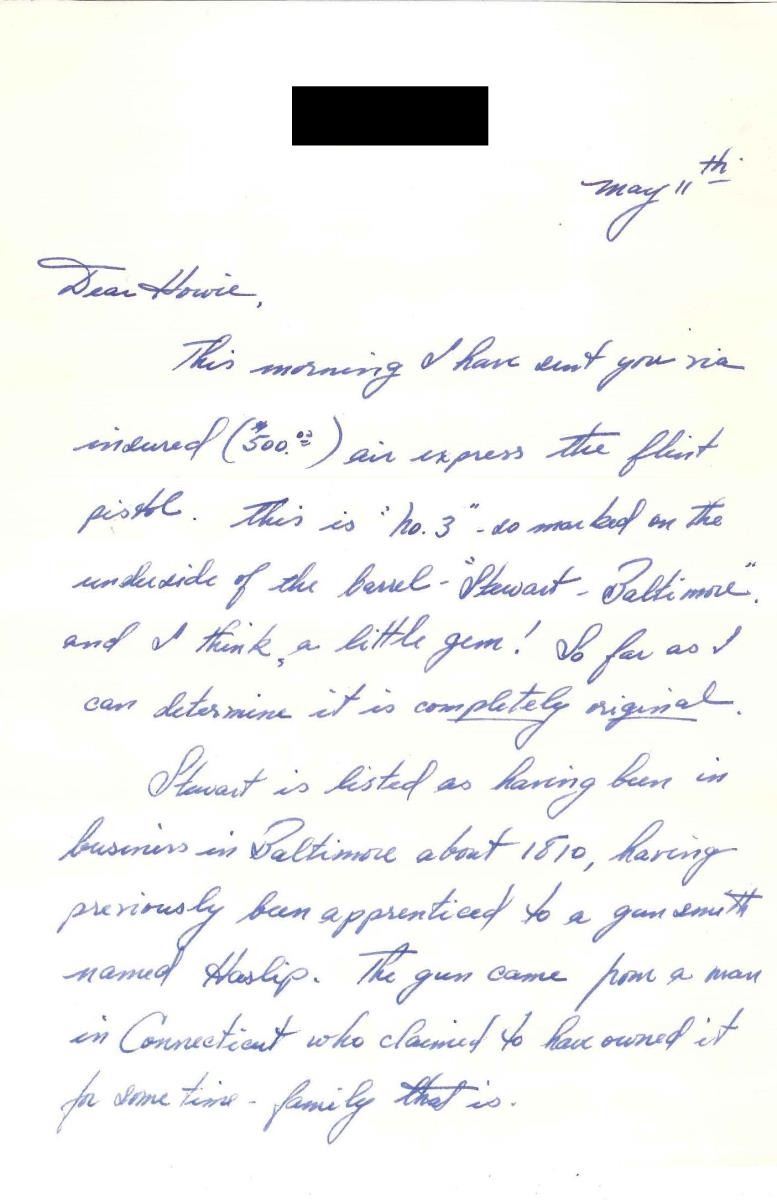 May 11th
Dear Howie,
This morning I have sent you via
insured ($500.00) air express the flint
pistol. This is "No. 3" - so marked on the
underside of the barrel - "Stewart - Baltimore".
and I think, a little gem! So far as I
can determine it is completely original.
Stewart is listed as having been in
business in Baltimore about 1810, having
previously been apprenticed to a gunsmith
named Haslip. The gun came from a man
in Connecticut who claimed to have owned it
for some time - family that is.